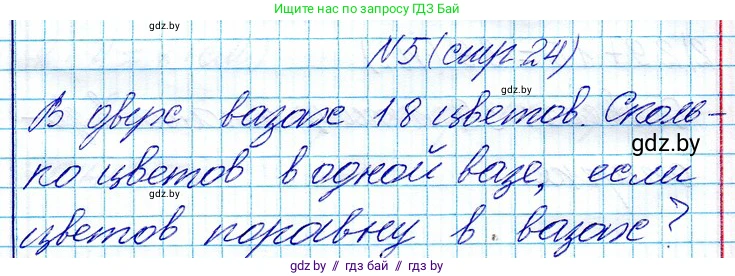 Ищите нас по запросу ГДЗ Бай
gdz.by
N5 (стр 24)
В двух вазах 18 цветов. Сколь-
gdz.by
ко цветов в одной вазе, если
цветов поравну в вазах?
gdz.by // гдз бай // gdz.by